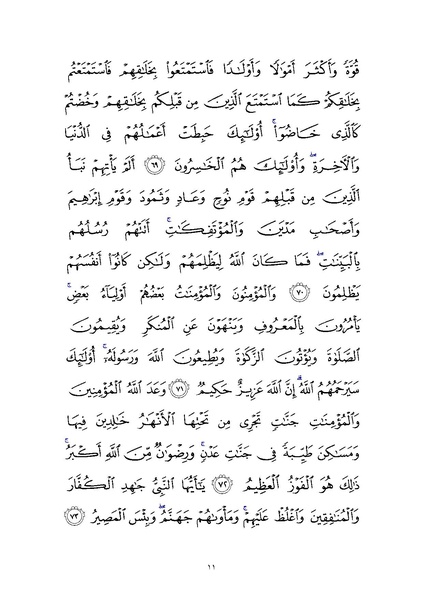 قُوَّةً وَأَكْثَرَ أَمْوَٰلًا وَأَوْلَٰدًا فَٱسْتَمْتَعُوا۟ بِخَلَٰقِهِمْ فَٱسْتَمْتَعْتُم
بِخَلَٰقِكُمْ كَمَا ٱسْتَمْتَعَ ٱلَّذِينَ مِن قَبْلِكُم بِخَلَٰقِهِمْ وَخُضْتُمْ
كَٱلَّذِى خَاضُوٓا۟ ۚ أُو۟لَٰٓئِكَ حَبِطَتْ أَعْمَٰلُهُمْ فِى ٱلدُّنْيَا
وَٱلْءَاخِرَةِ ۖ وَأُو۟لَٰٓئِكَ هُمُ ٱلْخَٰسِرُونَ ٦٩ أَلَمْ يَأْتِهِمْ نَبَأُ
ٱلَّذِينَ مِن قَبْلِهِمْ قَوْمِ نُوحٍ وَعَادٍ وَثَمُودَ وَقَوْمِ إِبْرَٰهِيمَ
وَأَصْحَٰبِ مَدْيَنَ وَٱلْمُؤْتَفِكَٰتِ ۚ أَتَتْهُمْ رُسُلُهُم
بِٱلْبَيِّنَٰتِ ۖ فَمَا كَانَ ٱللَّهُ لِيَظْلِمَهُمْ وَلَٰكِن كَانُوٓا۟ أَنفُسَهُمْ
يَظْلِمُونَ ٧٠ وَٱلْمُؤْمِنُونَ وَٱلْمُؤْمِنَٰتُ بَعْضُهُمْ أَوْلِيَآءُ بَعْضٍ ۚ
يَأْمُرُونَ بِٱلْمَعْرُوفِ وَيَنْهَوْنَ عَنِ ٱلْمُنكَرِ وَيُقِيمُونَ
ٱلصَّلَوٰةَ وَيُؤْتُونَ ٱلزَّكَوٰةَ وَيُطِيعُونَ ٱللَّهَ وَرَسُولَهُۥٓ ۚ أُو۟لَٰٓئِكَ
سَيَرْحَمُهُمُ ٱللَّهُ ۗ إِنَّ ٱللَّهَ عَزِيزٌ حَكِيمٌ ٧١ وَعَدَ ٱللَّهُ ٱلْمُؤْمِنِينَ
وَٱلْمُؤْمِنَٰتِ جَنَّٰتٍ تَجْرِى مِن تَحْتِهَا ٱلْأَنْهَٰرُ خَٰلِدِينَ فِيهَا
وَمَسَٰكِنَ طَيِّبَةً فِى جَنَّٰتِ عَدْنٍ ۚ وَرِضْوَٰنٌ مِّنَ ٱللَّهِ أَكْبَرُ ۚ
ذَٰلِكَ هُوَ ٱلْفَوْزُ ٱلْعَظِيمُ ٧٢ يَٰٓأَيُّهَا ٱلنَّبِىُّ جَٰهِدِ ٱلْكُفَّارَ
وَٱلْمُنَٰفِقِينَ وَٱغْلُظْ عَلَيْهِمْ ۚ وَمَأْوَىٰهُمْ جَهَنَّمُ ۖ وَبِئْسَ ٱلْمَصِيرُ ٧٣
١١